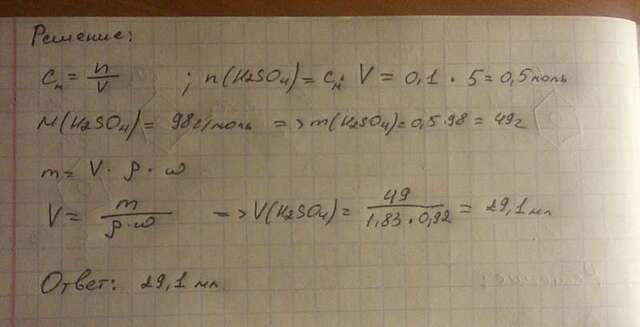 Решение:
Cм = n/V ; n(H2SO4) = Cм · V = 0,1 · 5 = 0,5 моль
M(H2SO4) = 98 г/моль => m(H2SO4) = 0,5 · 98 = 49 г
m = V · ρ · ω
V = m/ρ·ω => V(H2SO4) = 49/1,83 · 0,92 = 29,1 мл
Ответ: 29,1 мл